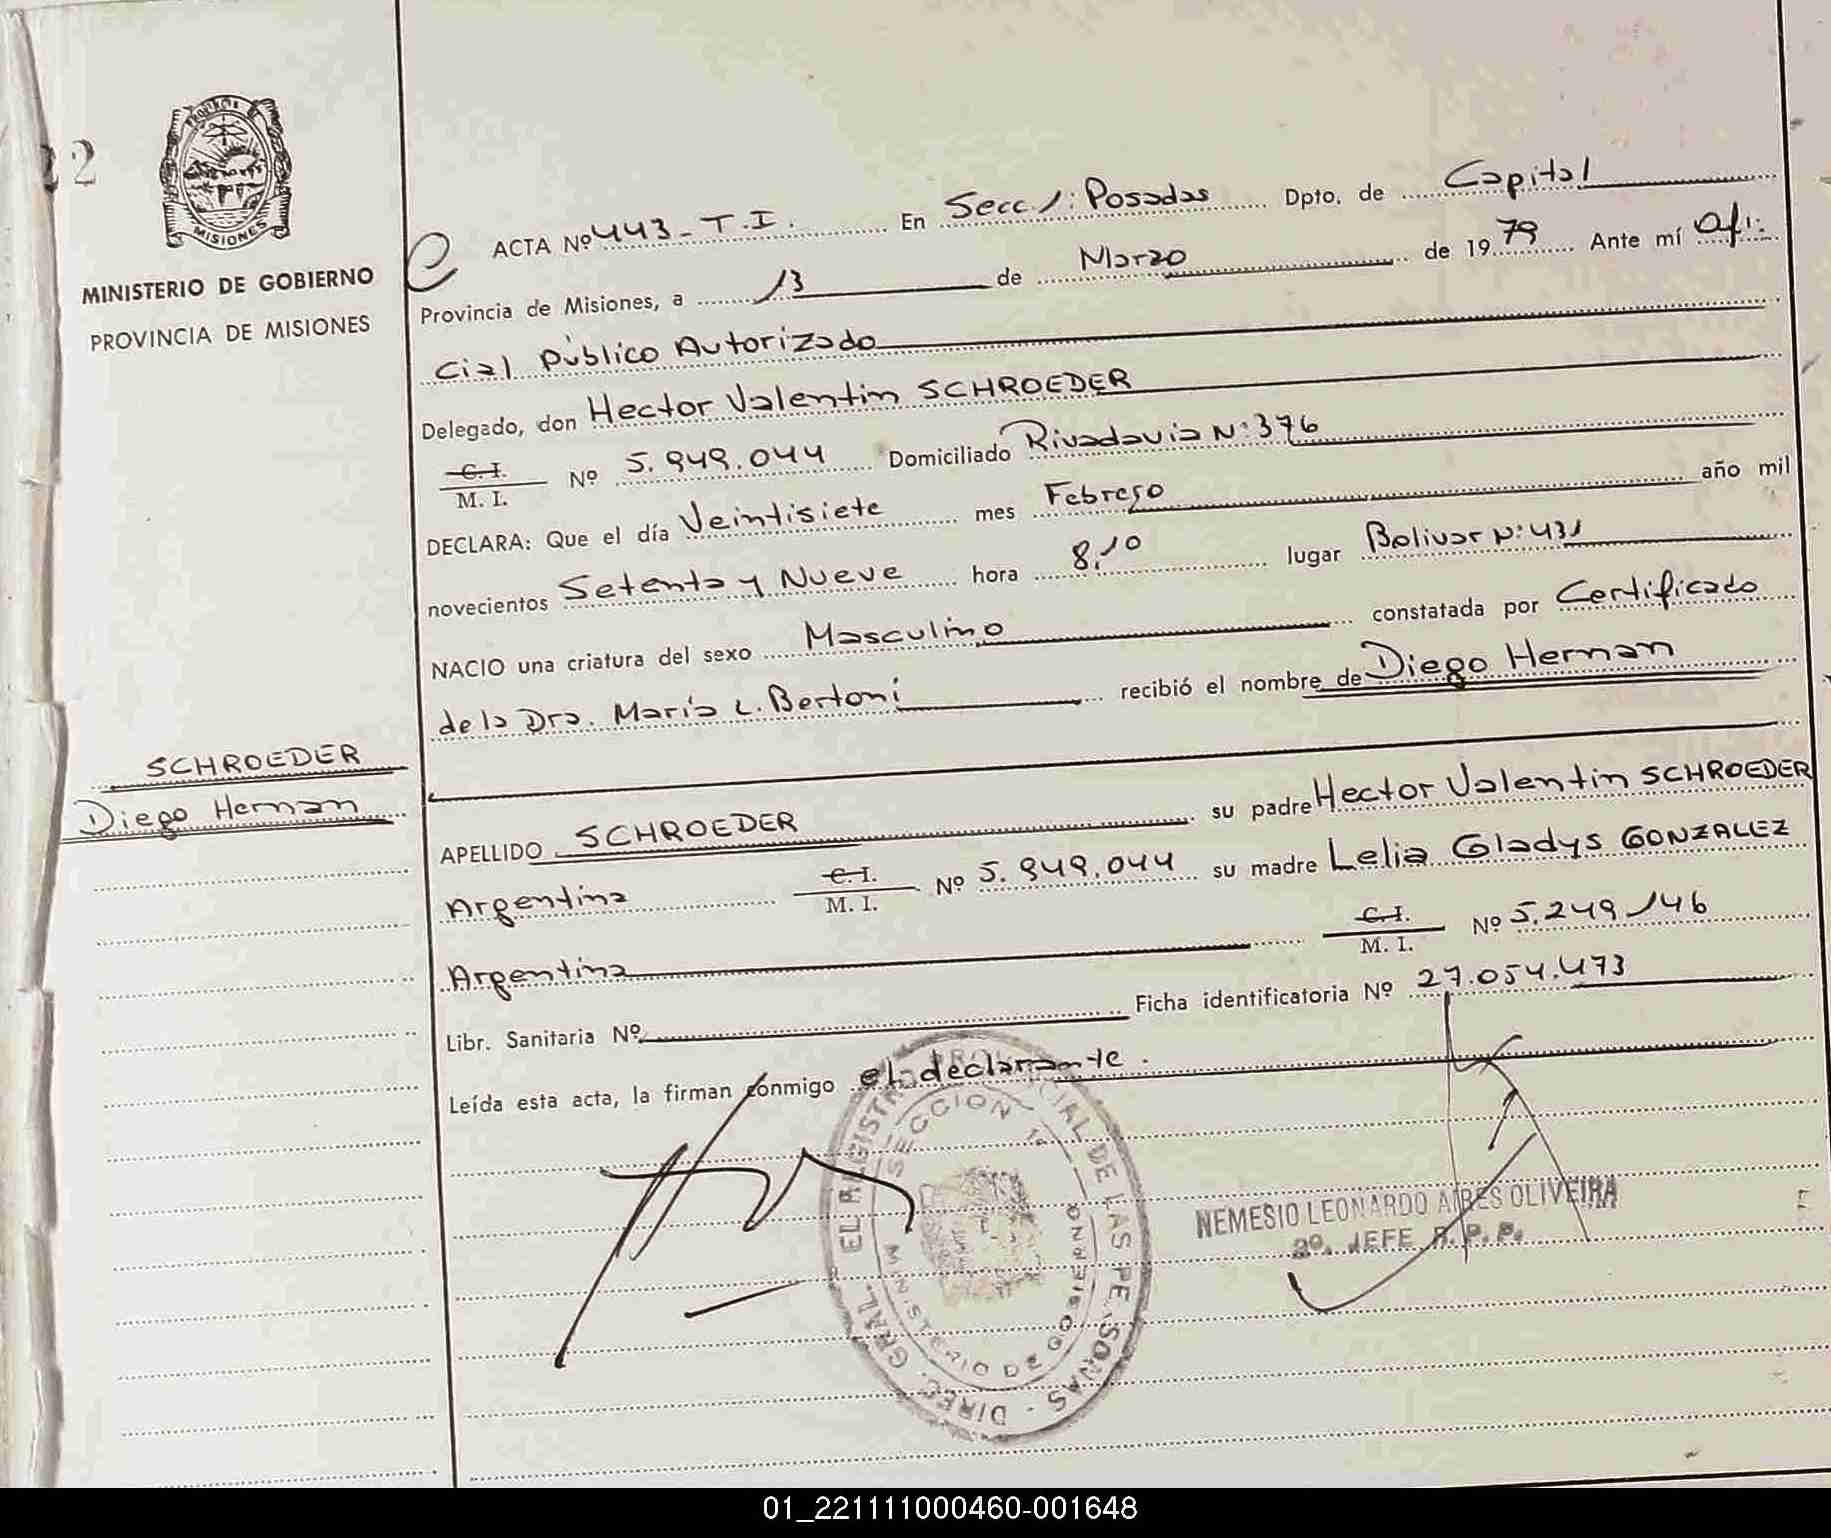 22
PROVINCIA DE
MISIONES
MINISTERIO DE GOBIERNO
PROVINCIA DE MISIONES
SCHROEDER
Diego Hernan
ACTA Nº 443 - T.I. En Secc. 1: Posadas Dpto. de Capital
Provincia de Misiones, a 13 de Marzo de 1979 Ante mí Ofi:
cial Público Autorizado
Delegado, don Hector Valentin SCHROEDER
C. I. / M. I. Nº 5.949.044 Domiciliado Rivadavia Nº 376
DECLARA: Que el día Veintisiete mes Febrero año mil
novecientos Setenta y Nueve hora 8,10 lugar Bolivar Nº 431
NACIO una criatura del sexo Masculino constatada por Certificado
de la Dra. María L. Bertoni recibió el nombre de Diego Hernan
APELLIDO SCHROEDER su padre Hector Valentin SCHROEDER
Argentina C. I. / M. I. Nº 5.949.044 su madre Lelia Gladys GONZALEZ
Argentina C. I. / M. I. Nº 5.249.146
Libr. Sanitaria Nº Ficha identificatoria Nº 27.054.473
Leída esta acta, la firman conmigo el declarante.
SECCION 1ª
MINISTERIO DE GOBIERNO
NEMESIO LEONARDO AIRES OLIVEIRA
2º. JEFE R. P. P.
01_221111000460-001648